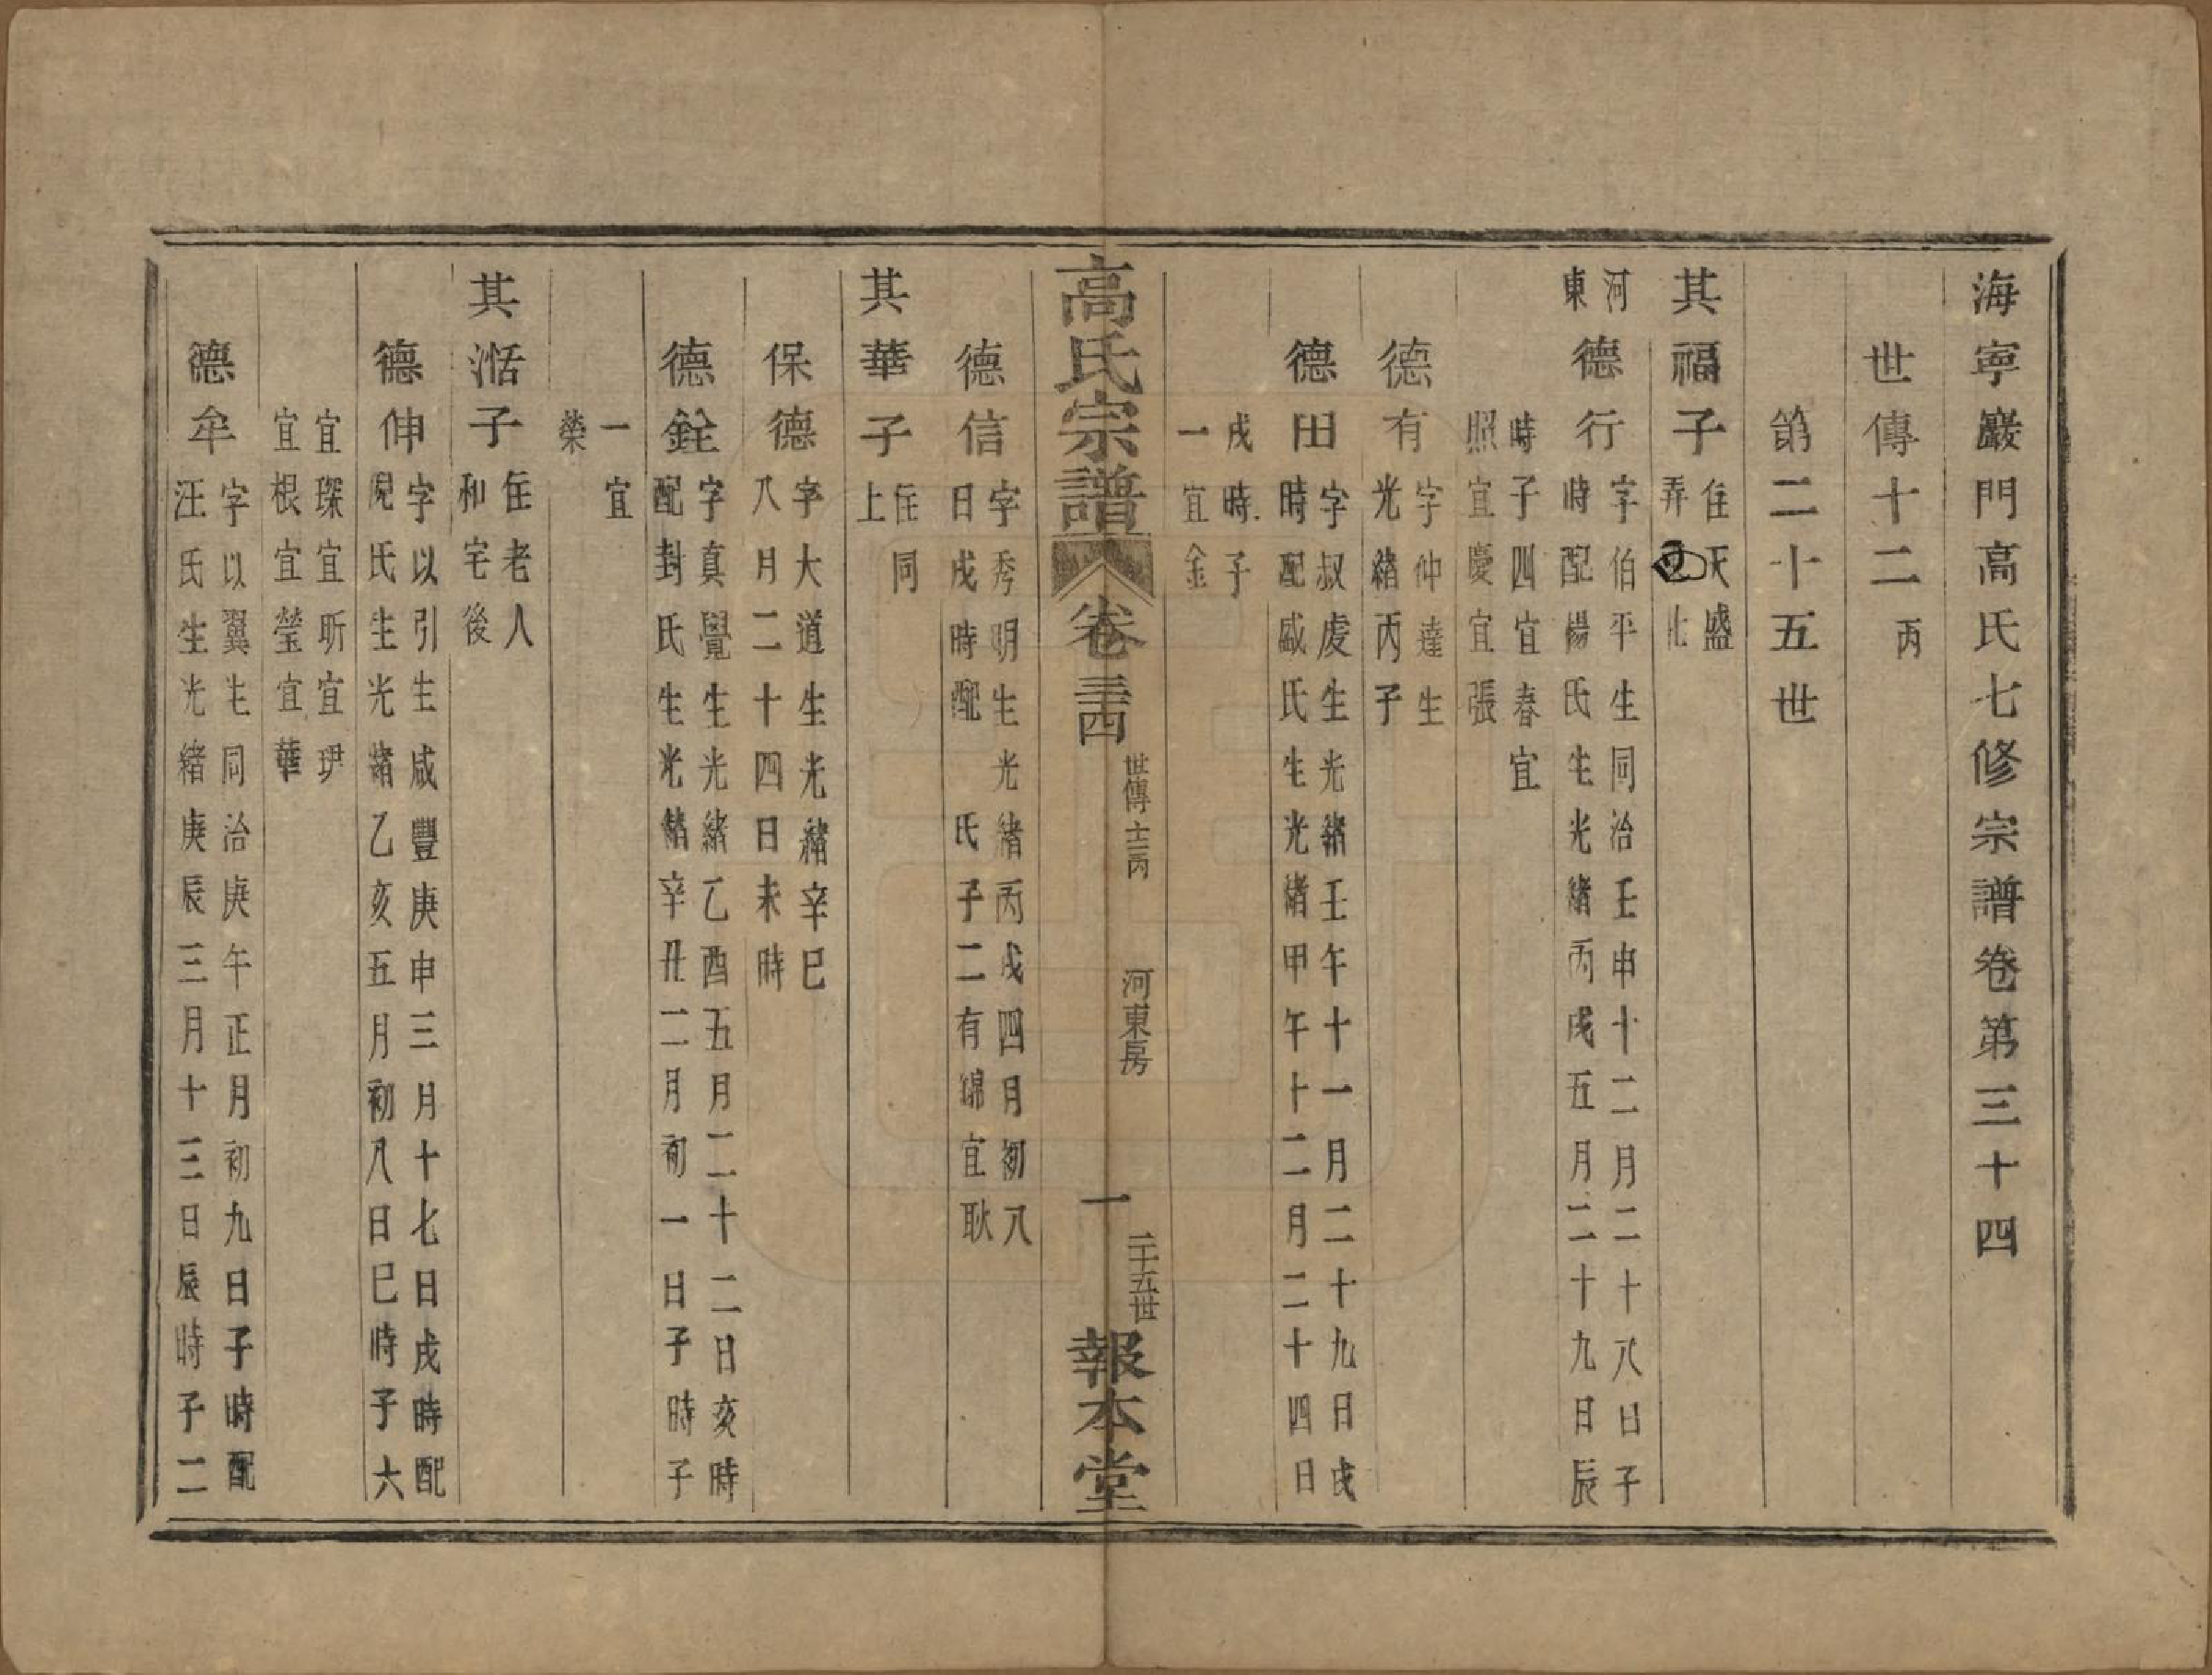 海寧巖門高氏七修宗譜卷第三十四
世傳十二丙
第二十五世
其福子住天盛
弄北
河
東
德行字伯平生同治壬申十二月二十八日子
時配楊氏生光緒丙戌五月二十九日辰
時子四宜春宜
照宜慶宜張
德有字仲達生
光緒丙子
德田字叔虔生光緒壬午十一月二十九日戌
時配戚氏生光緒甲午十二月二十四日
戌時子
一宜金
高氏宗譜 卷三十四 世傳十二丙 河東房 一 二十五世 報本堂
德信字秀明生光緒丙戌四月初八
日戌時配 氏子二有錦宜耿
其華子住同
上
保德字大道生光緒辛巳
八月二十四日未時
德銓字真覺生光緒乙酉五月二十二日亥時
配封氏生光緒辛丑二月初一日子時子
一宜
榮
其湉子住老人
和宅後
德伸字以引生咸豐庚申三月十七日戌時配
倪氏生光緒乙亥五月初八日巳時子六
宜琛宜昕宜玾
宜根宜瑩宜華
德牟字以翼生同治庚午正月初九日子時配
汪氏生光緒庚辰三月十三日辰時子二